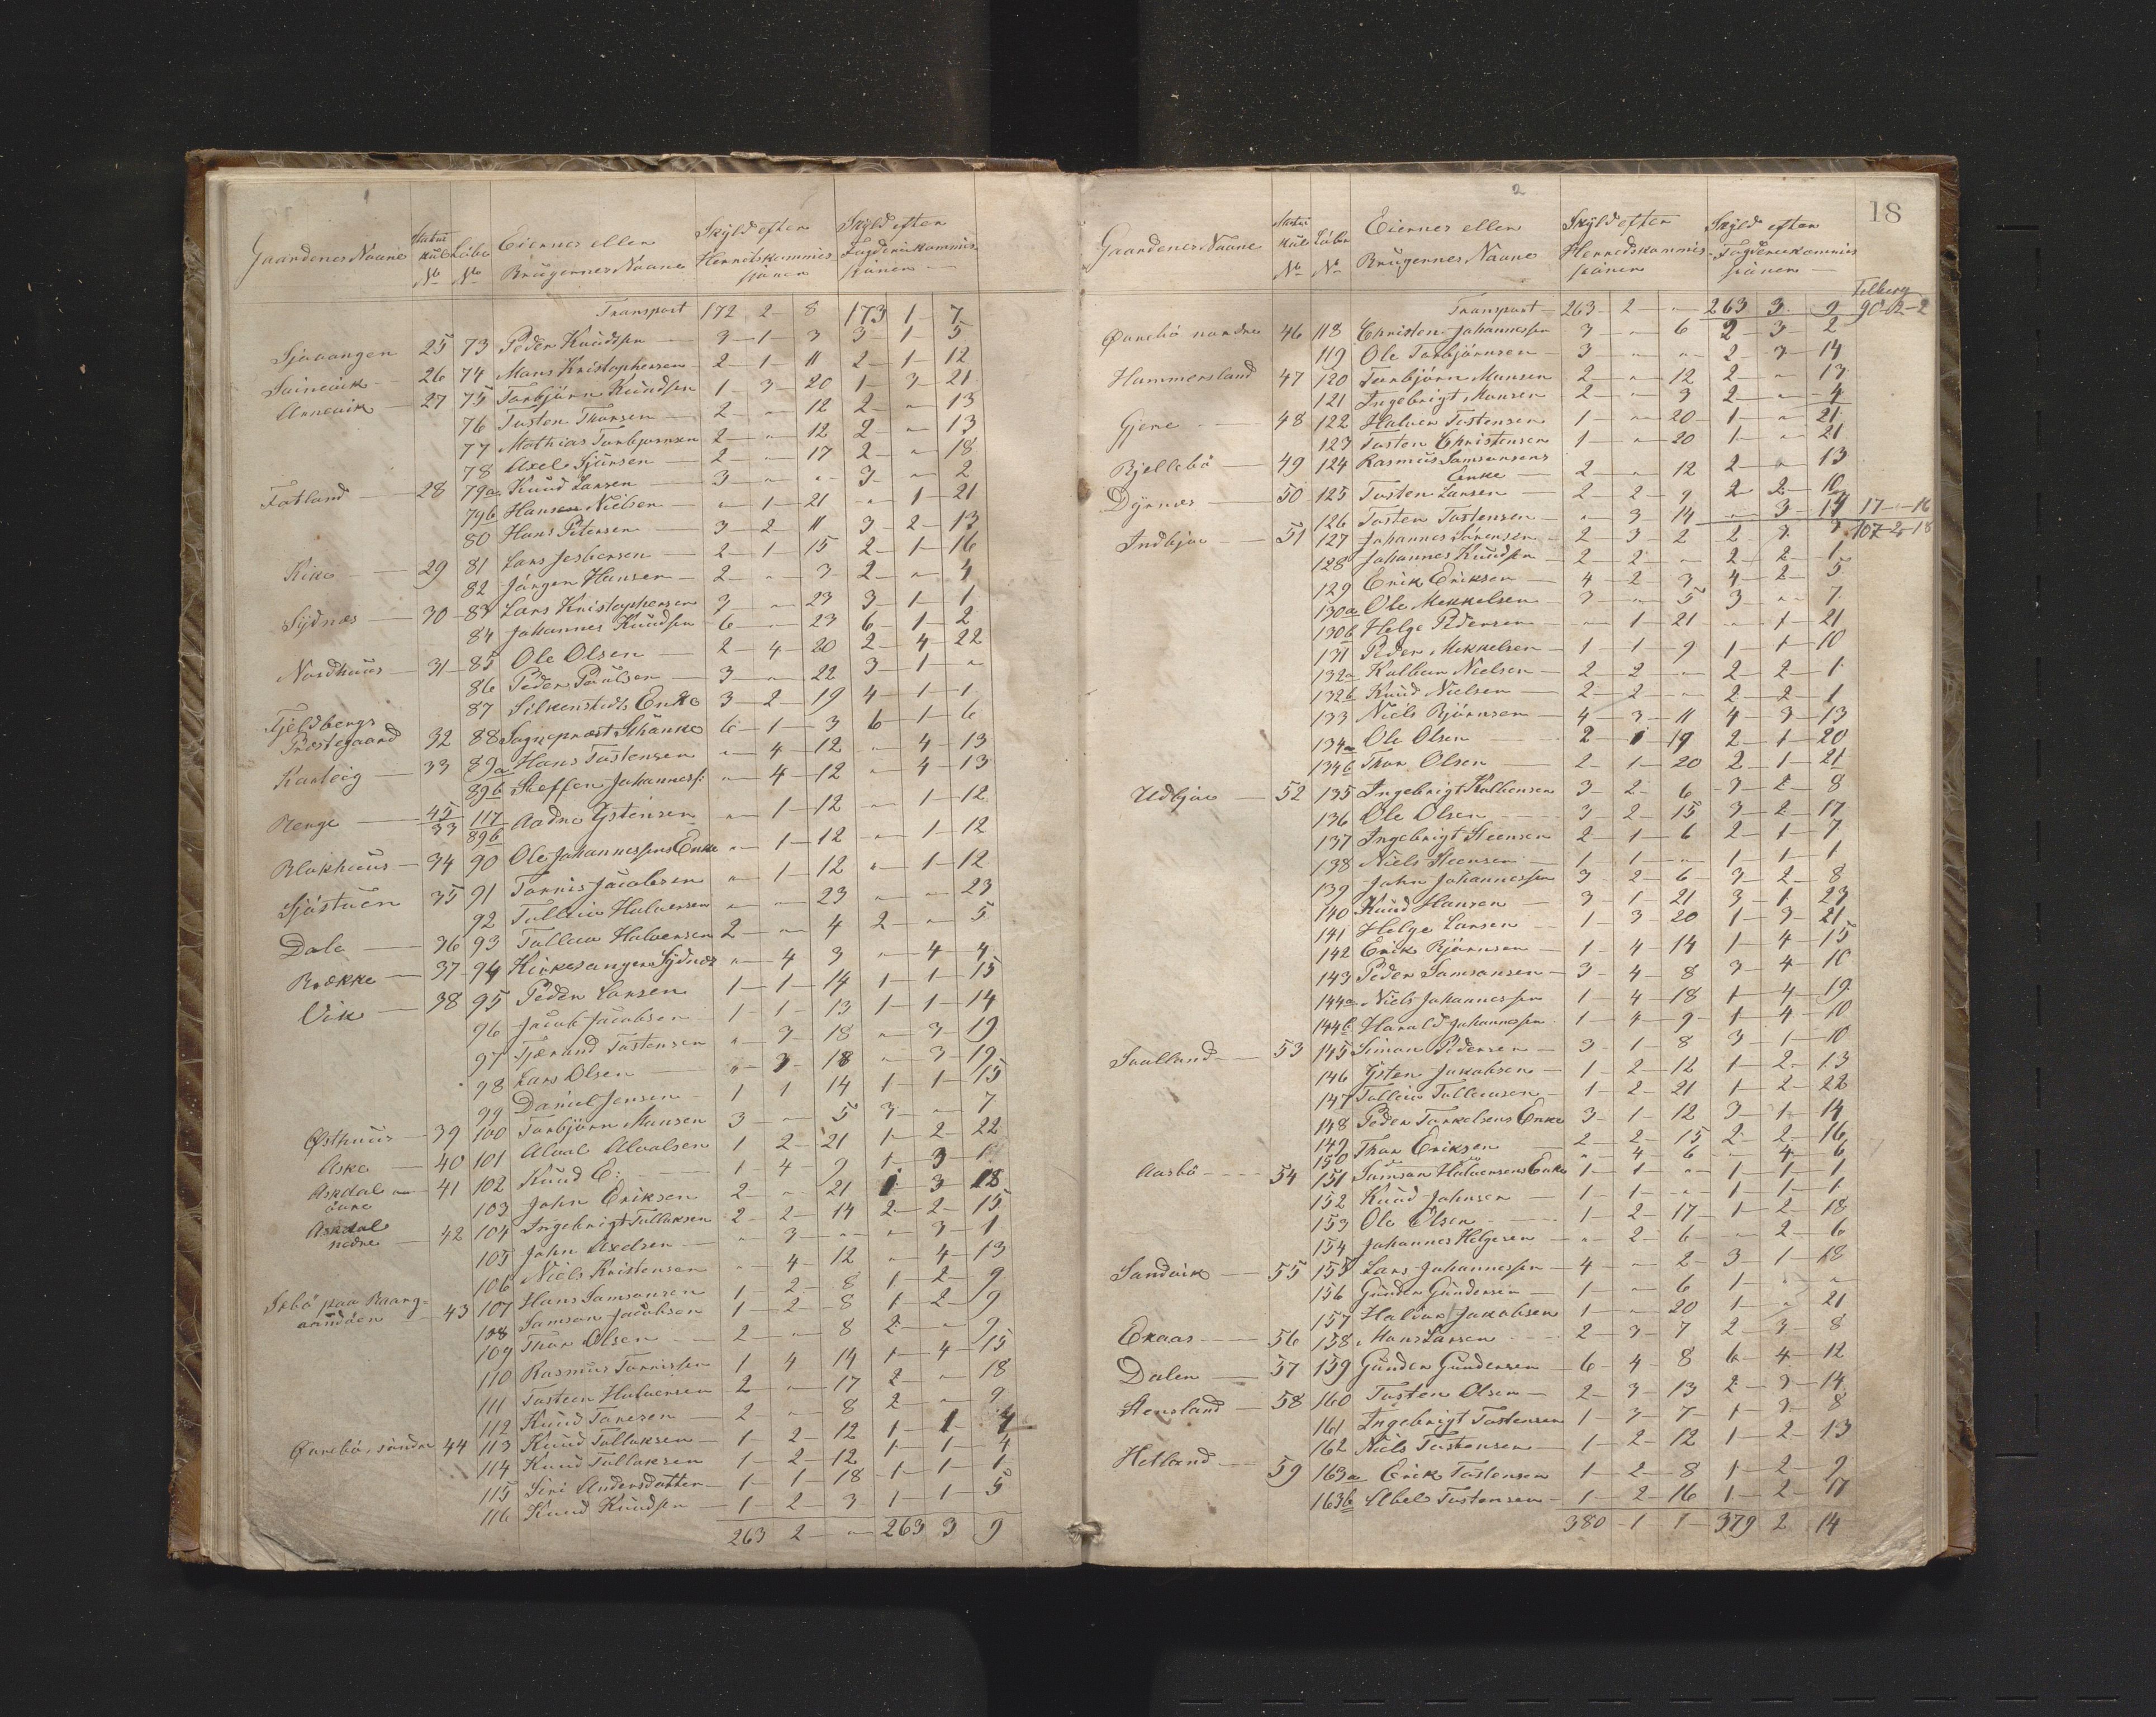 1
Gaardenes Navne Matrikul No Löbe No Eiernes eller Brugernes Navne Skyld efter Herredskommissionen Skyld efter Fogderikommissionen
Transport 172 2 8 173 1 7
25 73 Peder Knudsen 3 1 3 3 1 5
26 74 Mons Kristophersen 2 1 11 2 1 12
Arnevik 27 75 Torbjörn Knudsen 1 3 20 1 3 21
76 Tosten Thorsen 2 " 12 2 " 13
77 Mathias Torbjørnsen 2 " 12 2 " 13
78 Axel Sjursen 2 " 17 2 " 18
Fatland 28 79a Knud Larsen 3 " " 3 " 2
79b Hans Nielsen " 1 21 " 1 21
80 Hans Petersen 3 2 11 3 2 13
Kike 29 81 Lars Jesbersen 2 1 15 2 1 16
82 Jörgen Hansen 2 " 3 2 " 4
Sydnæs 30 83 Lars Kristophersen 3 " 23 3 1 1
84 Johannes Knudsen 6 " 23 6 1 2
Nordhuus 31 85 Ole Olsen 2 4 20 2 4 22
86 Peder Poulsen 3 " 22 3 1 "
87 Silkenstedts Enke 3 2 19 4 1 1
Fjeldbergs Præstegaard 32 88 Sogneprest Schanke 6 1 3 6 1 6
33 89a Hans Tostensen " 4 12 " 4 13
89b Steffen Johanness: " 4 12 " 4 13
Renge 45 33 117 89b Aadne Ystensen " 1 12 " 1 12
Blokhuus 34 90 Ole Johannesens Enke " 1 12 " 1 12
Sjöstuen 35 91 Tonnis Jacobsen " 1 12 " 1 12
92 Tollew Halvorsen " " 23 " " 23
Dale 36 93 Tollew Halvorsen 2 " 4 2 " 5
Brække 37 94 Kirkesanger Sydnæs " 4 3 " 4 4
Vik 38 95 Peder Larsen 1 1 14 1 1 15
96 Jacob Jacobsen 1 1 13 1 1 14
97 Tjerand Tostensen " 3 18 " 3 19
98 Lars Olsen " 3 18 " 3 19
99 Daniel Jensen 1 1 14 1 1 15
Østhuus 39 100 Torbjörn Monsen 3 " 5 3 " 7
Aske 40 101 Alvol Alvolsen 1 2 21 1 2 22
Askdal övre 41 102 Knud E: 1 4 9 1 3 1
103 John Eriksen 2 " 21 1 3 18
Askdal nedre 42 104 Ingebrigt Tollaksen 2 2 14 2 2 15
105 John Axelsen " 3 " " 3 1
106 Niels Kristensen " 4 12 " 4 13
43 107 Hans Samsonsen 1 2 8 1 2 9
108 Samson Jacobsen 1 2 8 1 2 9
109 Thor Olsen 2 " 8 2 " 9
110 Rasmus Tonnissen 1 4 14 1 4 15
111 Tosteen Halvorsen 2 " 17 2 " 18
112 Knud Toresen 2 " 8 2 " 9
Øvrebö söndre 44 113 Knud Tollaksen 1 2 12 1 1 4
114 Knud Tollaksen 1 2 12 1 1 4
115 Siri Andersdatter 1 1 18 1 1 1
116 Knud Knudsen 1 2 3 1 1 5
263 2 " 263 3 9
2
18
Gaardenes Navne Matrikul No Löbe No Eiernes eller Brugernes Navne Skyld efter Herredskommissionen Skyld efter Fogderikommissionen
Transport 263 2 " 263 3 9 90-2-2
Øvrebö nordre 46 118 Christen Johannessen 3 " 6 2 3 2
119 Ole Torbjörnsen 3 " " 2 3 14
Hammersland 47 120 Torbjörn Monsen 2 " 12 2 " 13
121 Ingebrigt Monsen 2 " 3 2 " 4
Gjere 48 122 Halvor Tostensen 1 " 20 1 " 21
123 Tosten Christensen 1 " 20 1 " 21
Bjellebö 49 124 Rasmus Samsonsens Enke 2 " 12 2 " 13
Dyrnes 50 125 Tosten Larsen 2 2 9 2 2 10
126 Tosten Tostensen " 3 14 " 3 14 17 " 16
Indbjoe 51 127 Johannes Sörensen 2 3 2 2 3 3 107-2-18
128 Johannes Knudsen 2 2 " 2 2 1
129 Erik Eriksen 4 2 3 4 2 5
130a Ole Mekkelsen 3 " 5 3 " 7
130b Helge Pedersen " 1 21 " 1 21
131 Peder Mekkelsen 1 1 9 1 1 10
132a Kolben Nielsen 2 2 " 2 2 1
132b Knud Nielsen 2 2 " 2 2 1
133 Niels Björnsen 4 3 11 4 3 13
134a Ole Olsen 2 1 19 2 1 20
134b Thor Olsen 2 1 20 2 1 21
Udbjoe 52 135 Ingebrigt Kolbensen 3 2 6 3 2 8
136 Ole Olsen 3 2 15 3 2 17
137 Ingebrigt Steensen 2 1 6 2 1 7
138 Niels Steensen 1 1 " 1 1 1
139 John Johannessen 3 2 6 3 2 8
140 Knud Hansen 3 1 21 3 1 23
141 Helge Larsen 1 3 20 1 3 21
142 Erik Björnsen 1 4 14 1 4 15
143 Peder Samsonsen 3 4 8 3 4 10
144a Niels Johannessen 1 4 18 1 4 19
144b Harald Johannessen 1 4 9 1 4 10
53 145 Simon Pedersen 3 1 8 3 1 10
146 Ysten Jakobsen 1 2 12 1 2 13
147 Tollew Tollewsen 1 2 21 1 2 22
148 Peder Torkelsens Enke 3 1 12 3 1 14
149 Thor Eriksen 2 2 15 2 2 16
150 " " 4 6 " 4 6
Aasbö 54 151 Samson Halvorsens Enke 1 1 " 1 1 1
152 Knud Johnsen 1 1 " 1 1 1
153 Ole Olsen 1 2 17 1 2 18
154 Johannes Helgesen " 2 6 " 2 6
Sandvik 55 155 Lars Johannessen 4 " 2 3 1 18
156 Gunder Gundersen 1 " 6 1 " "
157 Halvor Jakobsen 1 " 20 1 " 21
Ekaas 56 158 Mons Larsen 2 3 7 2 3 8
Dalen 57 159 Gunder Gundersen 6 4 8 6 4 12
Stensland 58 160 Tosten Olsen 2 3 13 2 3 14
161 Ingebrigt Tostensen 1 3 7 1 3 8
162 Niels Tostensen 1 2 12 1 2 13
Hetland 59 163a Erik Tostensen 1 2 8 1 2 9
163b Abel Tostensen 1 2 16 1 2 17
380 1 1 379 2 14